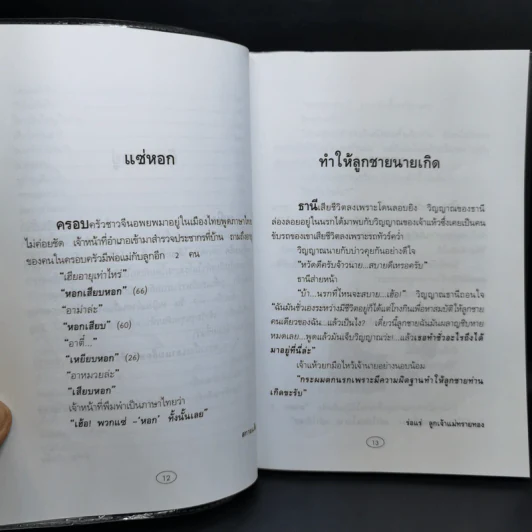 แซ่หอก
ครอบครัวชาวจีนอพยพมาอยู่ในเมืองไทยพูดภาษาไทย
ไม่ค่อยชัด เจ้าหน้าที่อำเภอเข้ามาสำรวจประชากรที่บ้าน ถามถึงอายุ
ของคนในครอบครัวมีพ่อแม่กับลูกอีก 2 คน
"เฮียอายุเท่าไหร่"
"หอกเสียบหอก" (66)
"อาม่าล่ะ"
"หอกเสียบ" (60)
"อาตี๋..."
"เหยียบหอก" (26)
"อาหมวยล่ะ"
"เสียบหอก"
เจ้าหน้าที่พึมพำเป็นภาษาไทยว่า
"เฮ้อ! พวกแซ่ -'หอก' ทั้งนั้นเลย"
12
ทำให้ลูกชายนายเกิด
ธานีเสียชีวิตลงเพราะโดนลอบยิง วิญญาณของธานี
ล่องลอยอยู่ในนรกได้มาพบกับวิญญาณของเจ้าแห้วซึ่งเคยเป็นคน
ขับรถของเขาเสียชีวิตลงเพราะรถทัวร์คว่ำ
วิญญาณนายกับบ่าวคุยกันอย่างดีใจ
"หวัดดีครับจ้าวนาย...สบายดีหรอครับ"
ธานีส่ายหน้า
"บ้า...นรกที่ไหนจะสบาย...เฮ้อ!" วิญญาณธานีถอนใจ
"ฉันมันชั่วเองระหว่างมีชีวิตอยู่ก็ได้แต่โกงกินเพื่อหาสมบัติให้ลูกชาย
คนเดียวของฉัน แล้วเป็นไง? เดี๋ยวนี้ลูกชายฉันมันผลาญซิบหาย
หมดเลย...พูดแล้วมันเจ็บวิญญาณว่ะ!...แล้วเธอทำชั่วอะไรถึงได้
มาอยู่ที่นี่ล่ะ"
เจ้าแห้วยกมือไหว้เจ้านายอย่างนอบน้อม
"กระผมตกนรกเพราะมีความผิดฐานทำให้ลูกชายท่าน
เกิดขะรับ"
ร่อแร่ ลูกเจ้าแม่ทรายทอง
13